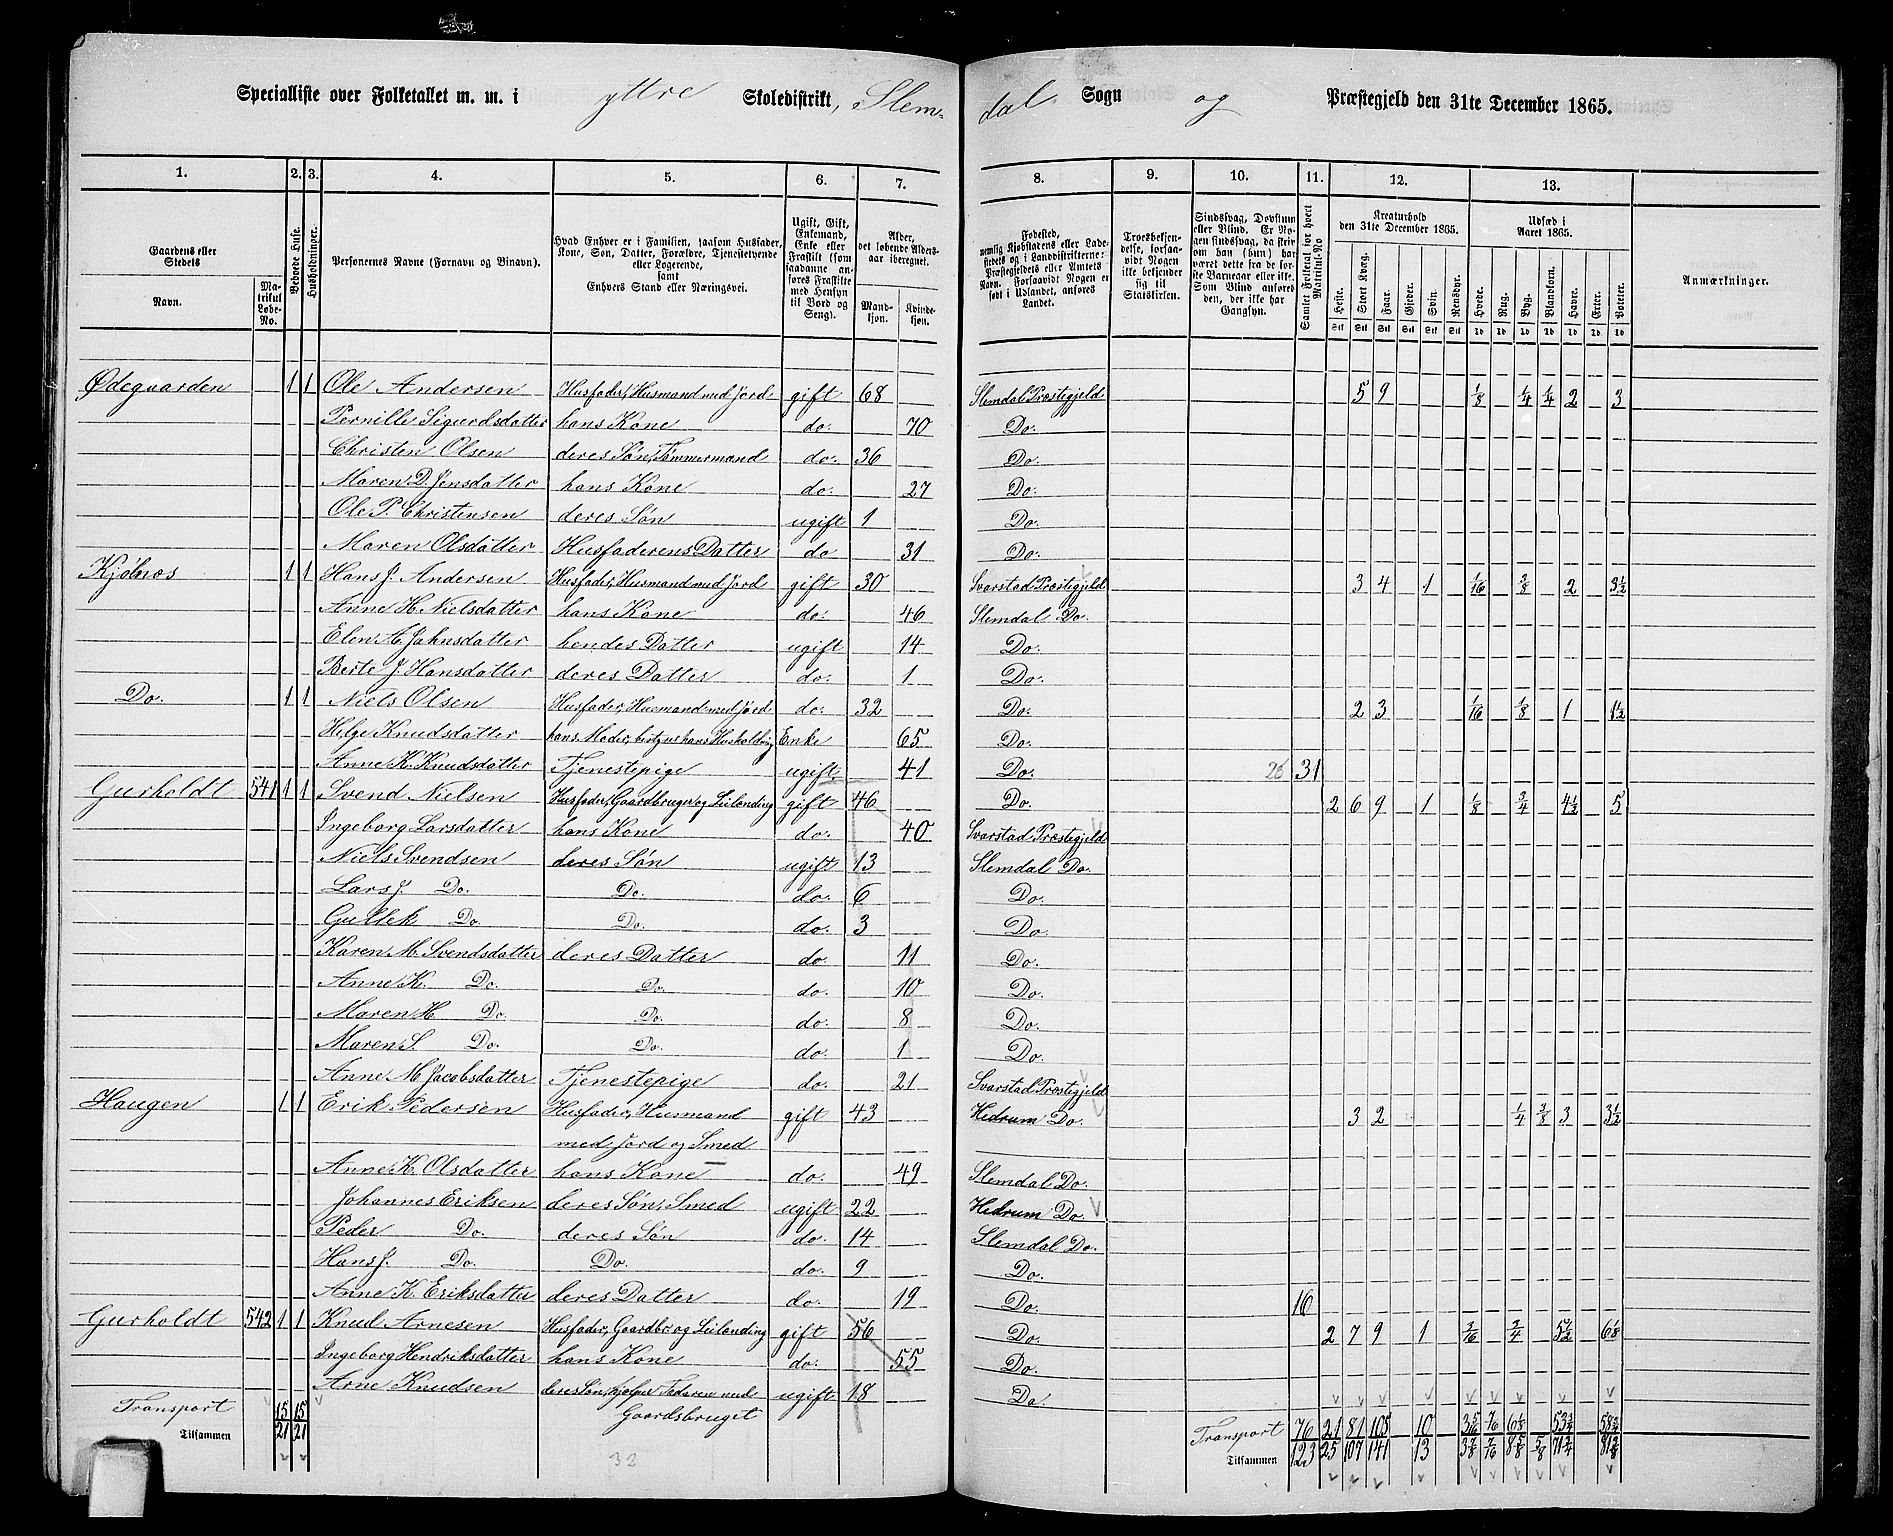 Specialliste over Folketallet m. m. i yttre Skoledistrikt, Slem-dal Sogn og Præstegjeld den 31te December 1865.
1. 2. 3. 4. 5. 6. 7. 8. 9. 10. 11. 12. 13.
Gaardens eller Stedets Navn. Matrikul Løbe-No. Beboede Huse. Husholdninger. Personernes Navne (Fornavn og Binavn). Hvad Enhver er i Familien, saasom Husfader, Kone, Søn, Datter, Forældre, Tjenestetyende eller Logerende, samt Enhvers Stand eller Næringsvei. Ugift, Gift, Enkemand, Enke eller Fraskilt (som saadanne anføres Fraskilte med Hensyn til Bord og Seng). Alder, det løbende Alders-aar iberegnet. Mandkjøn. Kvindekjøn.
Fødested, nemlig Kjøbstadens eller Ladestedets og i Landdistrikterne: Præstegjeldets eller Amtets Navn. Forsaavidt Nogen er født i Udlandet, anføres Landet. Troesbekjendelse, forsaavidt Nogen ikke bekjender sig til Statskirken. Sindssvag, Døvstum eller Blind. Er Nogen sindssvag, da skrives om han (hun) har været dette fra de første Barneaar eller ikke. Som Blind anføres den, der ikke har Gangsyn. Samlet Folketal for hvert Matrikul-No. Kreaturhold den 31te December 1865. Heste. Stort Kvæg. Faar. Gjeder. Svin. Rensdyr. Udsæd i Aaret 1865. Hvede. Rug. Byg. Blandkorn. Havre. Erter. Poteter. Anmærkninger.
Ødeguarden 1 1 Ole Andersen Husfader, Husmand med Jord gift 68 Slemdal Præstegjeld 5 9 1/8 1/4 1/4 2 3
Pernille Sigurdsdatter hans Kone do. 70 Do.
Christen Olsen deres Søn, Tømmermand do. 36 Do.
Maren D. Jensdatter hans Kone do. 27 Do.
Ole P. Christensen deres Søn ugift 1 Do.
Maren Olsdatter Husfaderens Datter do 31 Do.
Kjølnæs 1 1 Hans J. Andersen Husfader, Husmand med Jord gift 30 Svarstad Præstegjeld 3 4 1 1/16 3/8 2 3 1/2
Anne H. Nielsdatter hans Kone do. 46 Slemdal Do.
Elen A. Jahnsdatter hendes Datter ugift 14 Do.
Berte J. Hansdatter deres Datter do. 1 Do.
Do. 1 1 Niels Olsen Husfader, Husmand med Jord do. 32 Do. 2 3 1/16 1/8 1 1 1/2
Helge Knudsdatter hans Moder, bestyrer hans Husholdning Enke 65 Do.
Anne K. Knudsdatter Tjenestepige ugift 41 Do. 26 31
Gurholdt 541 1 1 Svend Nielsen Husfader, Gaardbruger og Leilending gift 46 Do. 2 6 9 1 1/8 3/4 4 1/2 5
Ingeborg Larsdatter hans Kone do. 40 Svarstad Præstegjeld
Niels Svendsen deres Søn ugift 13 Slemdal Do.
Lars J. Do. Do. do. 6 Do.
Gullek Do. Do. do. 3 Do.
Karen M. Svendsdatter deres Datter do. 11 Do.
Anne K. Do. Do. do. 10 Do.
Maren H. Do. Do. do. 8 Do.
Maren S. Do. Do. do. 1 Do.
Anne M. Jacobsdatter Tjenestepige do. 21 Svarstad Præstegjeld
Haugen 1 1 Erik Pedersen Husfader, Husmand gift 43 Hedrum Do. 3 2 1/4 3/8 3 3 1/2
med Jord og Smed
Anne K. Olsdatter hans Kone do. 49 Slemdal Do.
Johannes Eriksen deres Søn, Smed ugift 22 Hedrum Do.
Peder Do. deres Søn do. 14 Slemdal Do.
Hans J. Do. Do. do. 9 Do.
Anne K. Eriksdatter deres Datter do. 19 Do. 16
Gurholdt 542 1 1 Knud Arnesen Husfader, Gaardbr og Leilending gift 56 Do. 2 7 9 1 3/16 3/4 6 1/8
Ingeborg Hendriksdatter hans Kone do. 55 Do.
Arne Knudsen deres Søn, hjelper Faderen med ugift 18 Do
Gaardsbruget
Transport 15 15 Transport 76 21 81 105 10 3 5/16 7/16 6 1/8 53 3/4 58 3/4
Tilsammen 21 21 Tilsammen 123 25 107 141 13 3 7/8 7/16 8 5/8 5/8 71 3/4 81 3/8
32